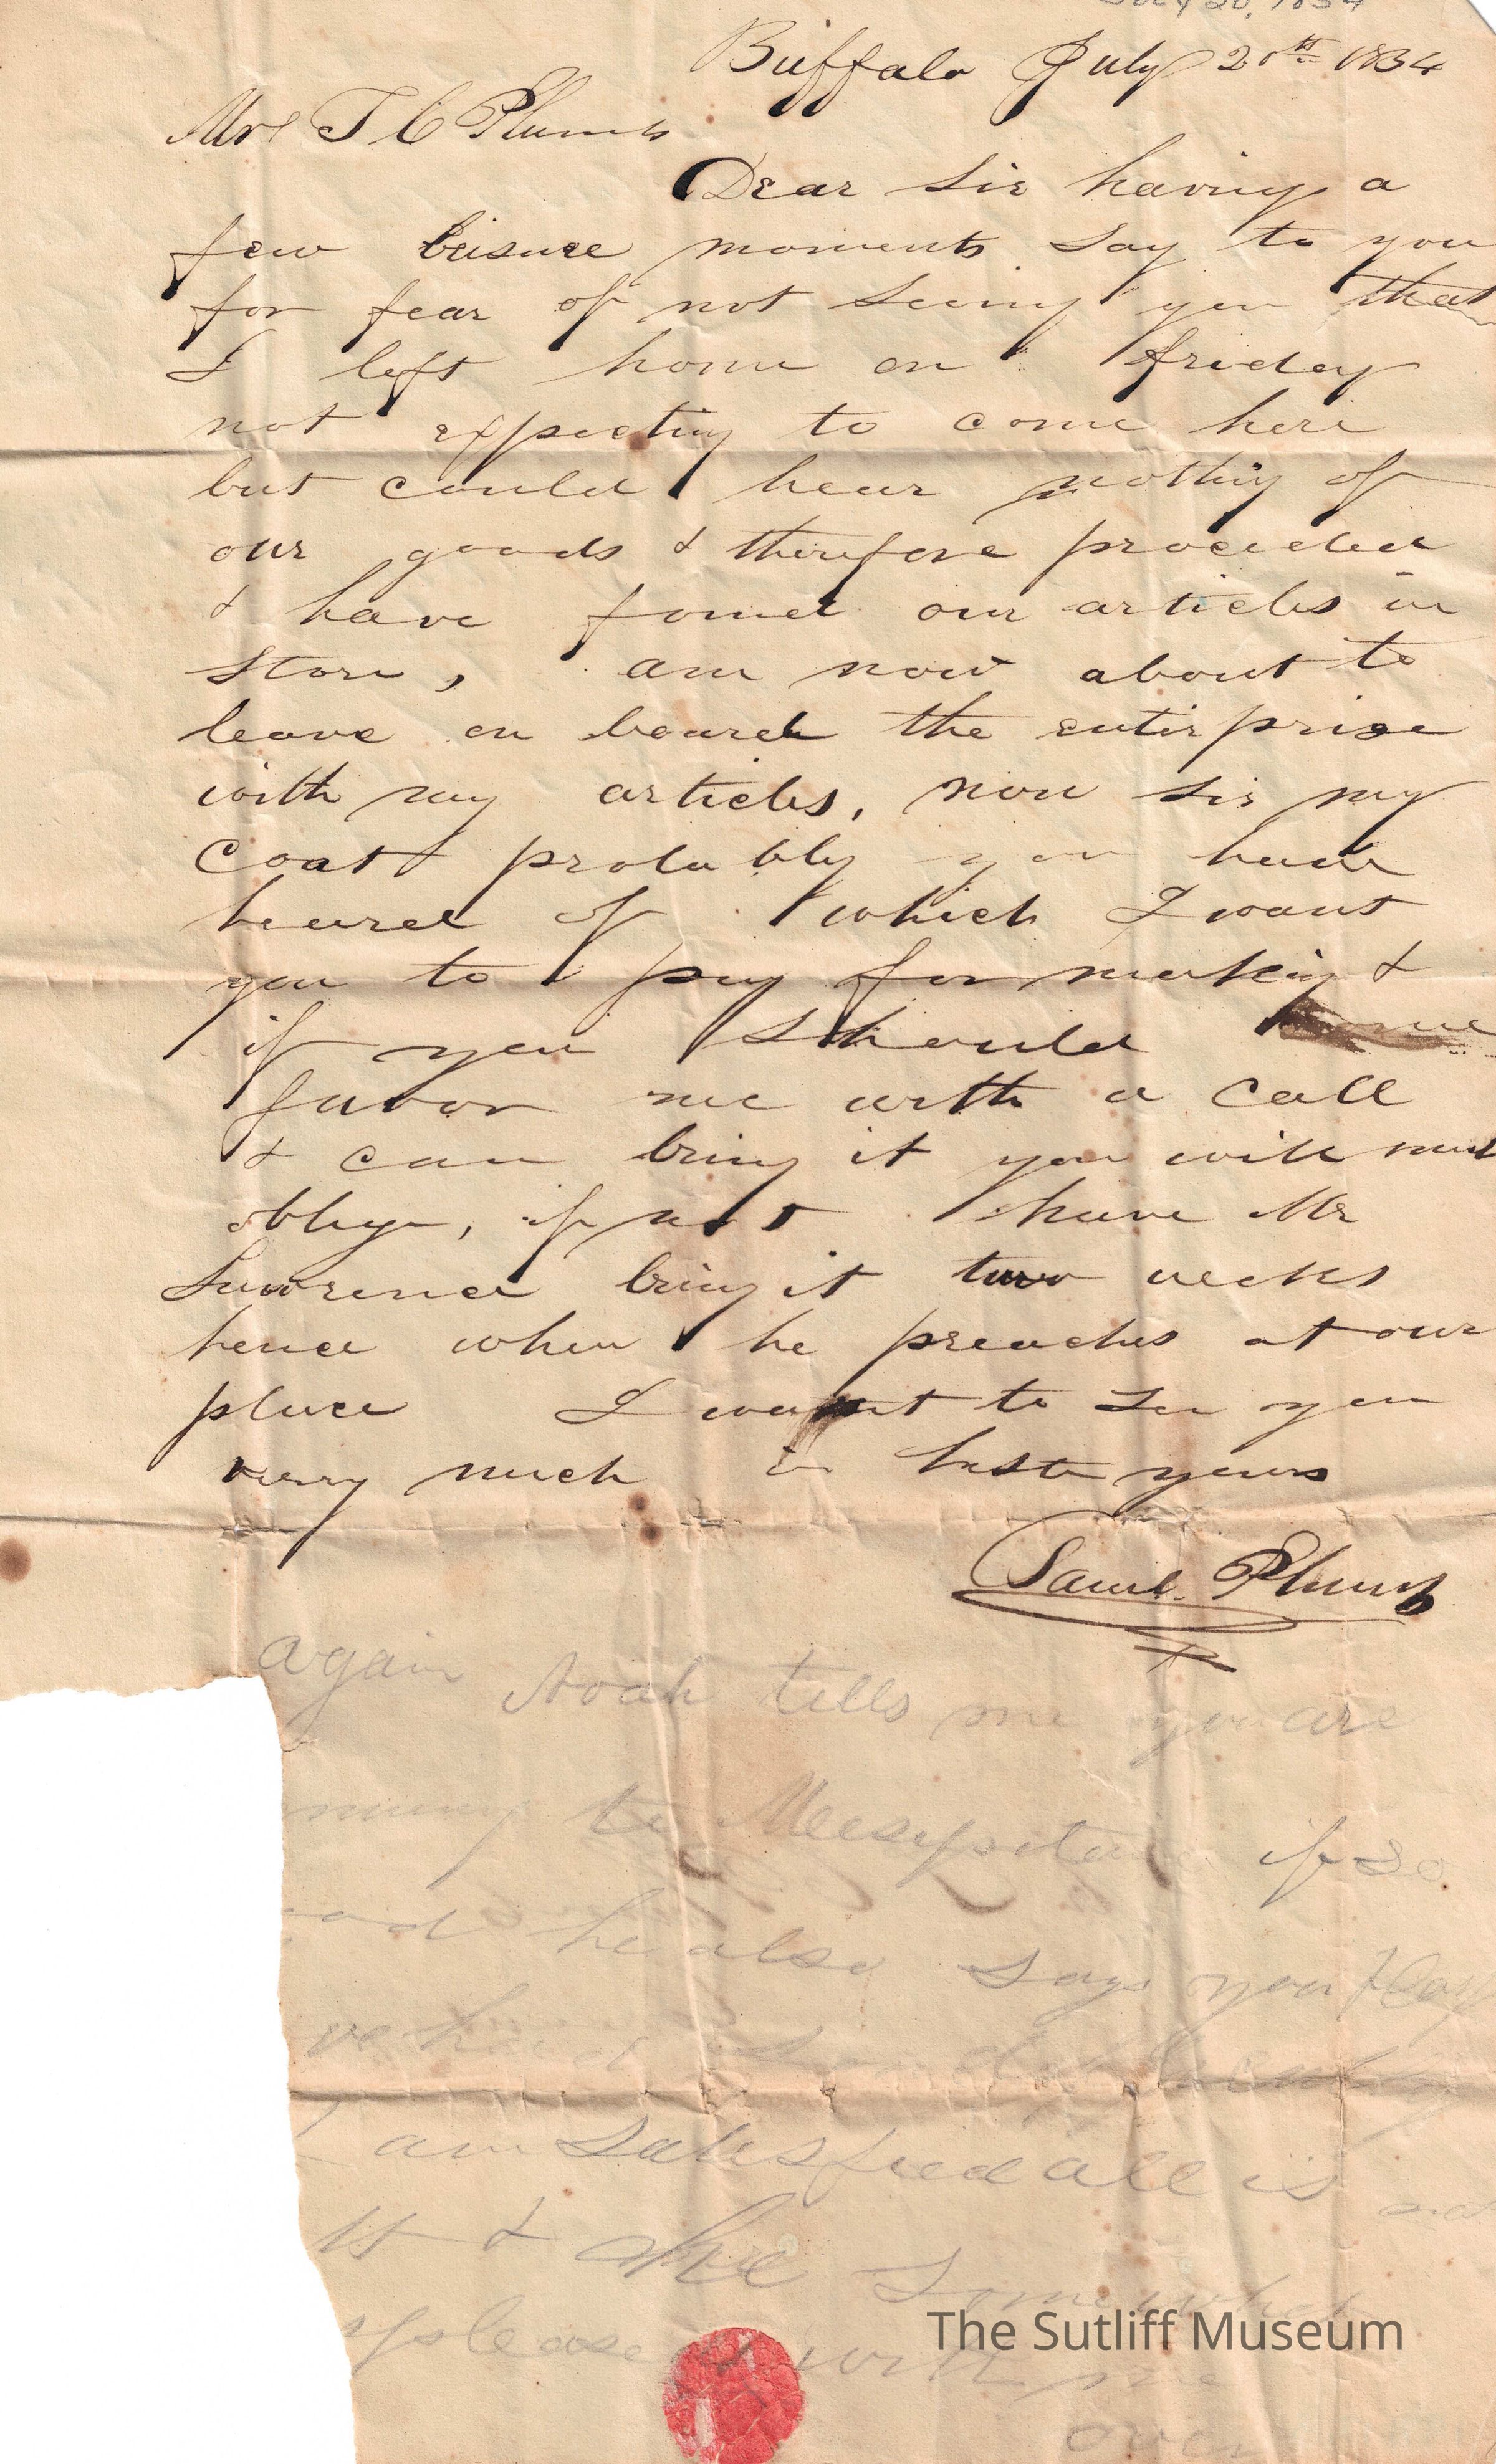 July 20, 1834
Buffalo July 20th 1834
Mr T C Plumb
Dear Sir having a
few leisure moments say to you
for fear of not seeing you that
I left home on friday
not expecting to come here
but could hear nothing of
our goods & therefore proceeded
& have found our articles in
store, am now about to
leave on board the enterprise
with my articles, now sir my
coat probably you have
heard of which I want
you to pay for making &
if you should come
favor me with a call
& can bring it you will much
oblige, if not have Mr
Lawrence bring it two weeks
hence when he preaches at our
place I want to see you
very much in haste yours
Saml. Plumb
again Noah tells me you are
to Mesopotamia if so
he also says you
ve had
I am satisfied all is not
& she somewhat
please with me
over
The Sutliff Museum